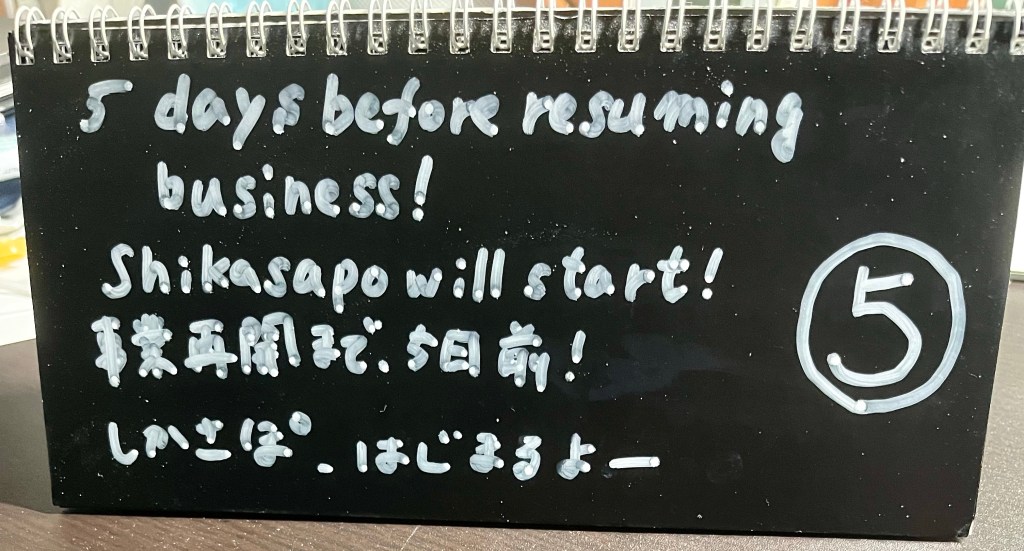 5 days before resuming
business!
Shikasapo will start!
事業再開まで、5日前!
しかさぽ、はじまるよー
⑤